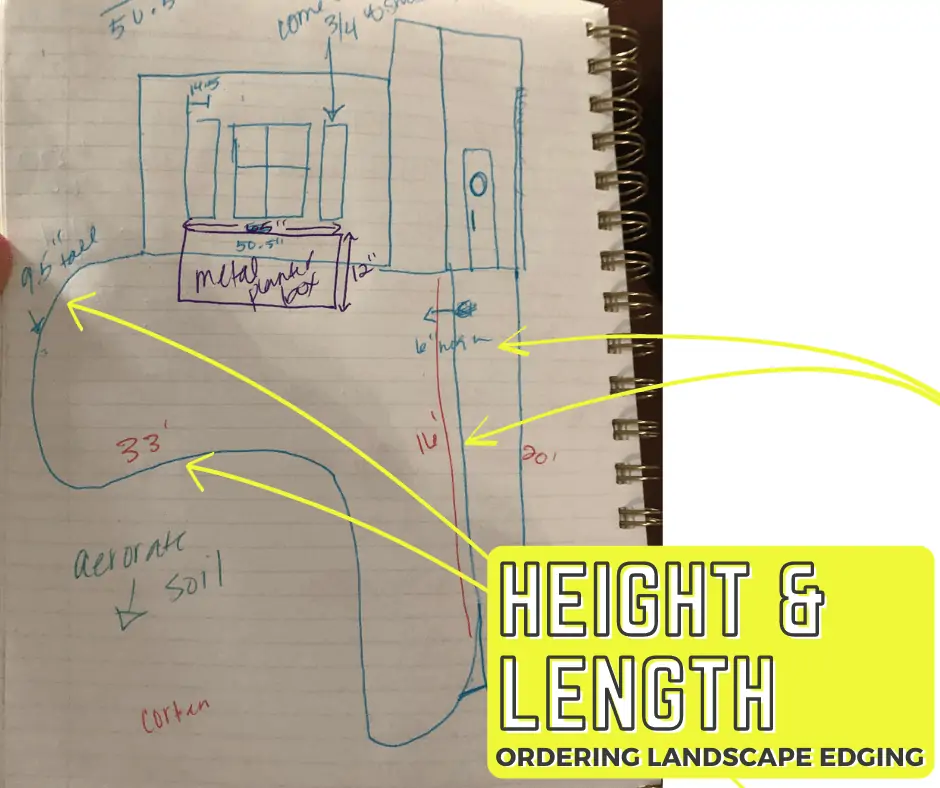 50.5
come
3/4
14.5
9.5" tall
50.5"
metal
planter
box
12"
6"
33'
16'
20'
aerorate
soil
corten
HEIGHT &
LENGTH
ORDERING LANDSCAPE EDGING